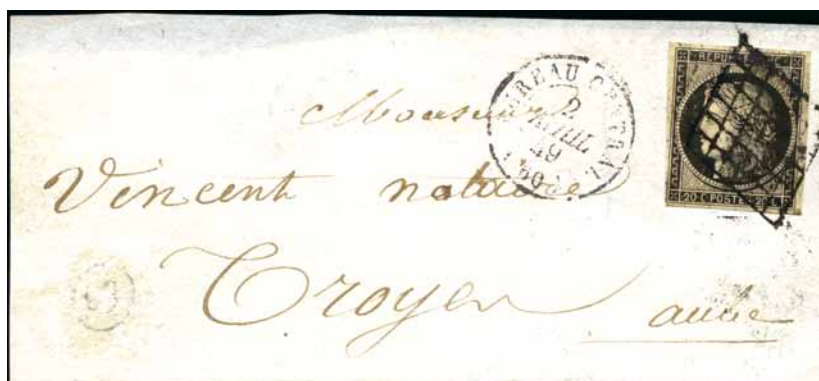 BUREAU CENTRAL
2
AVRIL
49
(60)
REPUB
20 C POSTE 20 C
Monsieur
Vincent notaire
Troyes
aube